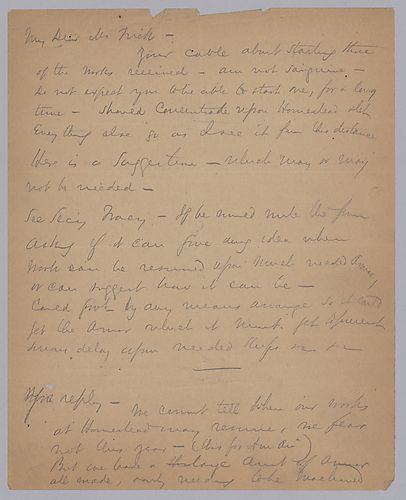 My Dear Mr Frick —
Your cable about starting three
of the works received — am not sanguine —
do not expect you to be able to start one, for a long
time — Should Concentrate upon Homestead let
Everything else go as I see it from this distance
Here is a Suggestion — which may or may
not be needed —
See Secy Tracy — If he would write the firm
asking if it can give any idea when
work can be resumed upon much needed Armor,
or can suggest how it can be —
Could Govt by any means arrange so it could
get the Armor which it must get & prevent
serious delay upon needed ships
reply — We cannot tell when our works
at Homestead may resume, we fear
not this year — (this for Am Air)
But we have a large Amt of Armor
all made, only needing to be machined